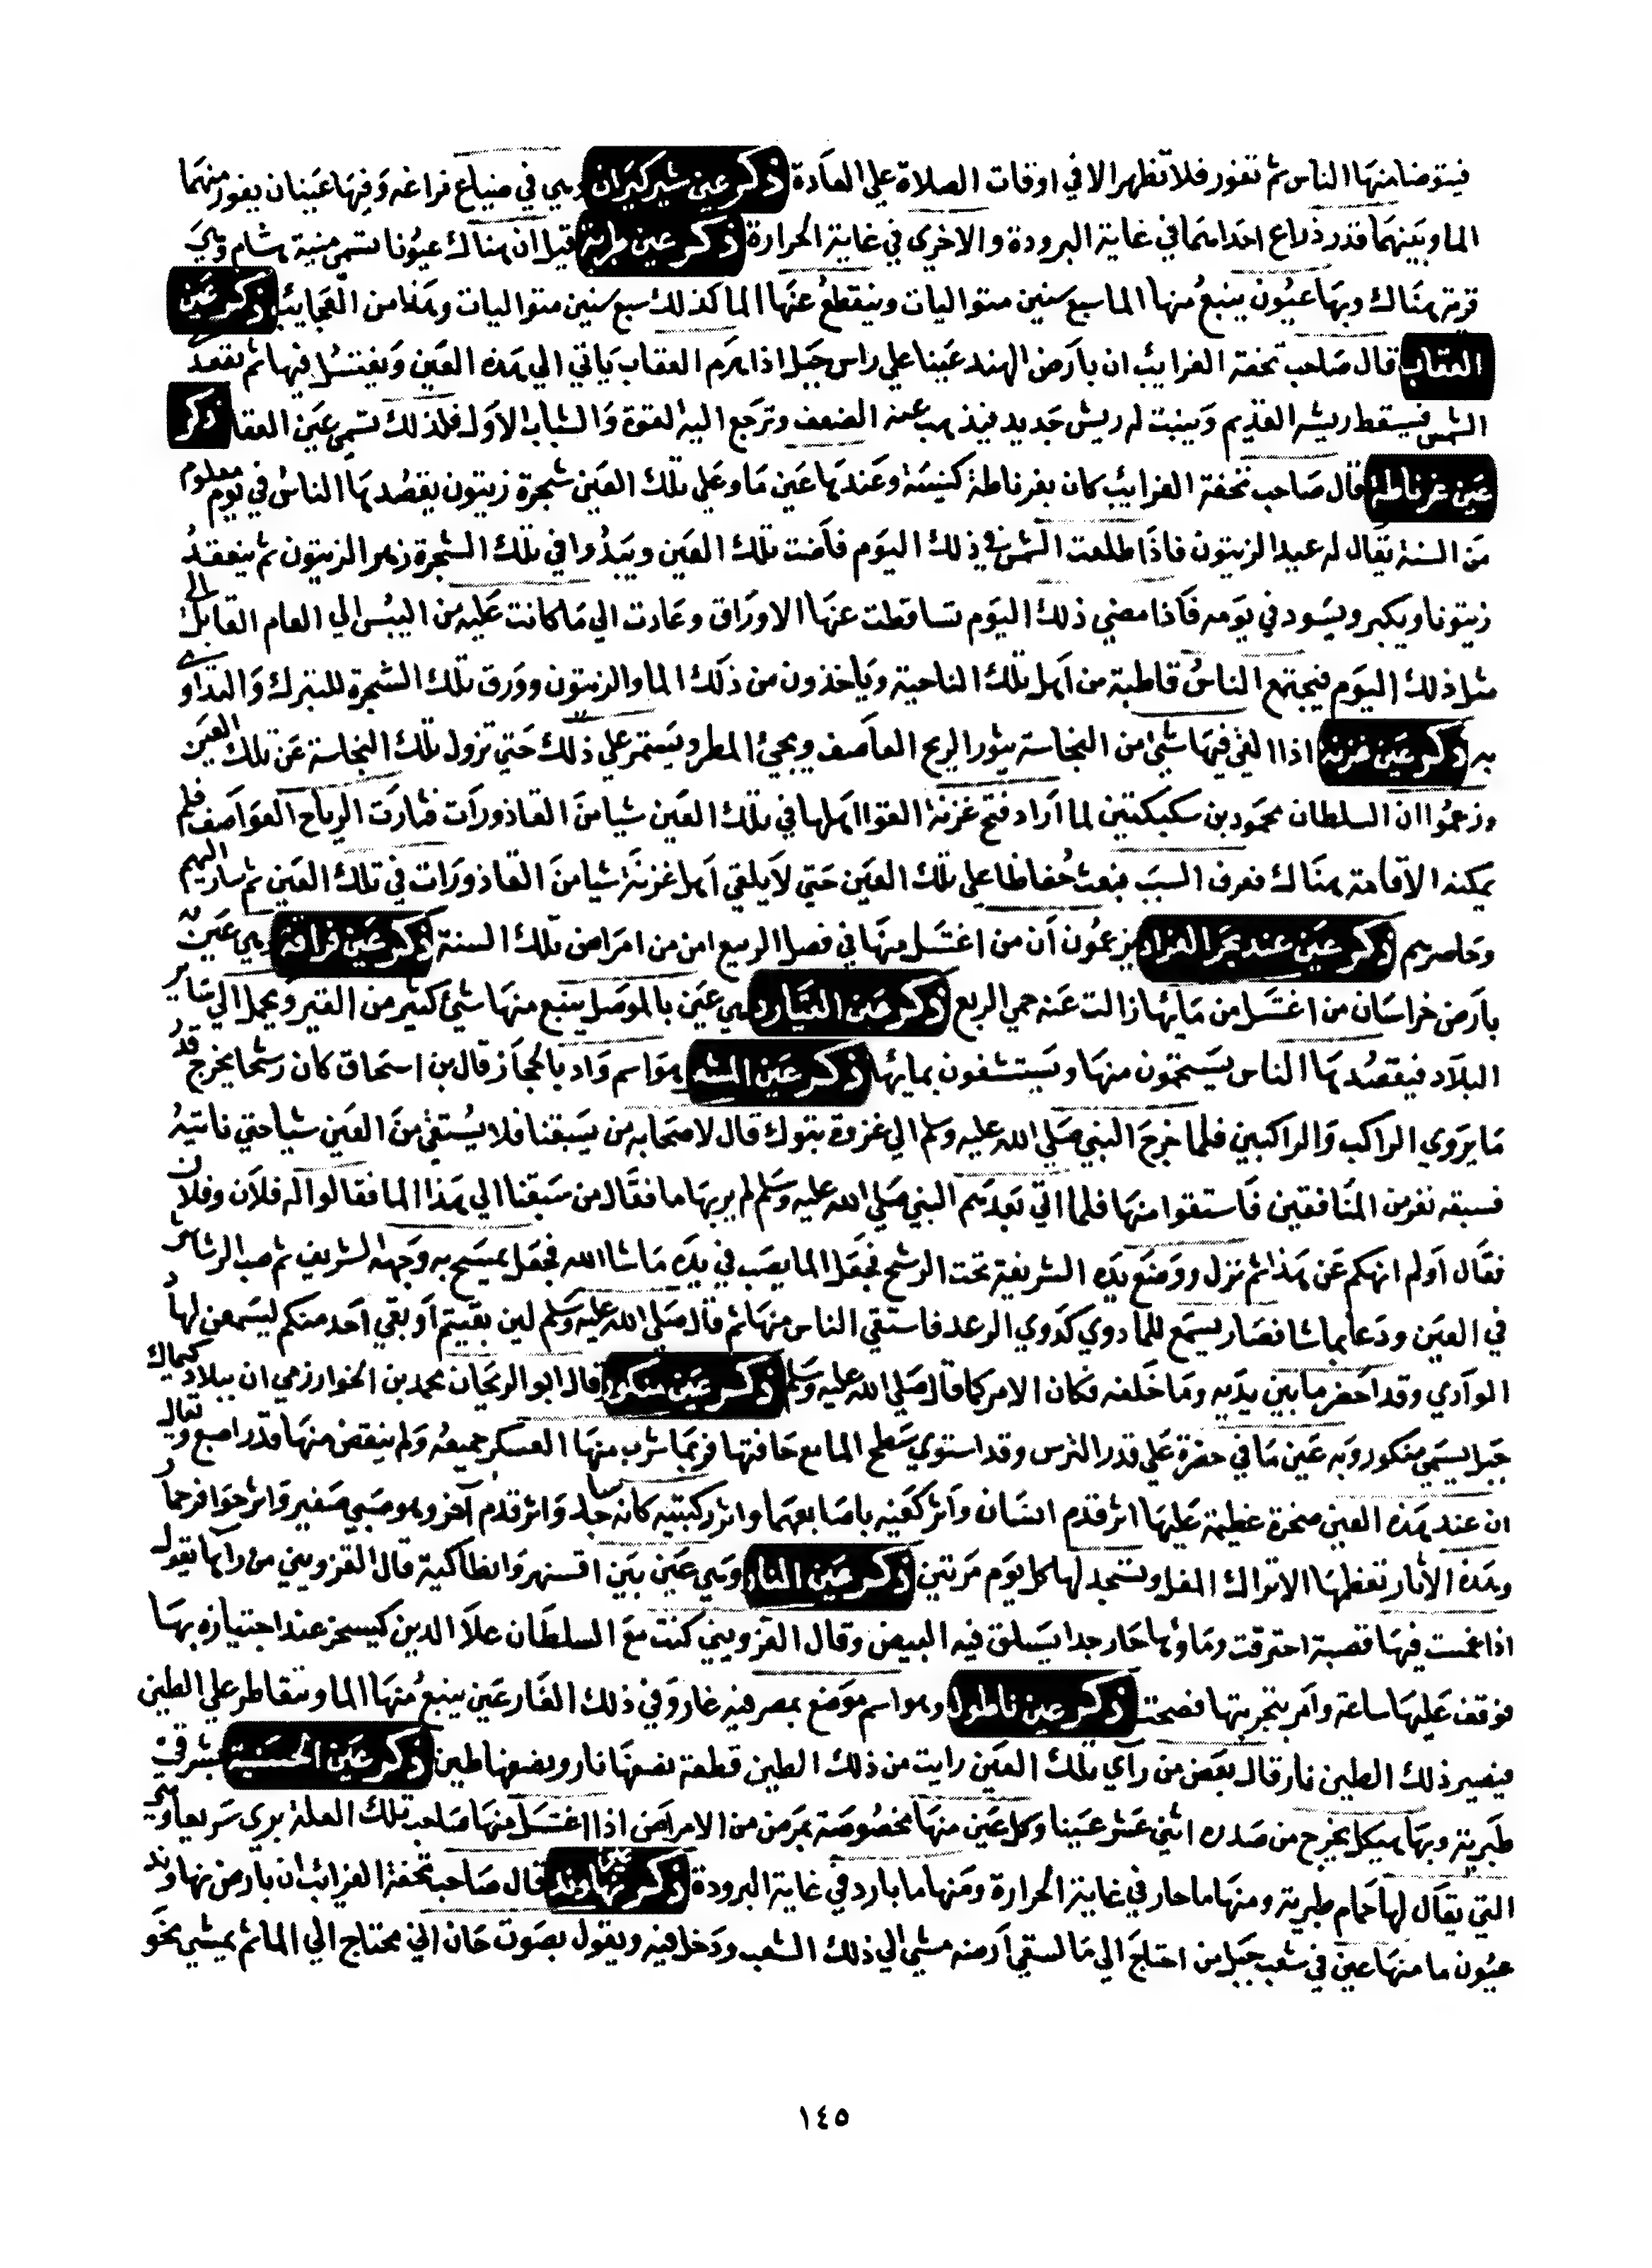 فيتوضا منها الناس ثم تغور فلا تظهر الا في اوقات الصلاة علي العادة ذكر عين شيركيران وهي في ضياع مراغه وفيها عينان يفور منهما
الما وبينهما قدر ذراع احداهما في غاية البرودة والاخري في غاية الحرارة ذكر عين طبرية قيل ان هناك عيونا تسمي منية هشام وهي
قرية هناك وبها عيون ينبع منها الما سبع سنين متواليات وينقطع عنها الما كذلك سبع سنين متواليات وهذا من العجايب ذكر عين
العقاب قال صاحب تحفة الغرايب ان بارض الهند عينا علي راس جبل اذا هرم العقاب ياتي الي هذه العين ويغتسل فيها ثم يقعد
الشمس فيسقط ريشه القديم وينبت له ريش جديد فيذهب عنه الضعف وترجع اليه القوة والشباب الاول فلذلك تسمي عين العقا ذكر
عين غرناطة قال صاحب تحفة الغرايب كان بغرناطة كنيسة وعندها عين ما وعلي تلك العين شجرة زيتون يقصدها الناس في يوم معلوم
من السنة يقال له عيد الزيتون فاذا طلعت الشمس في ذلك اليوم فاضت تلك العين ويبدوا في تلك الشجرة زهر الزيتون ثم ينعقد
زيتونا ويكبر ويسود في يومه فاذا مضي ذلك اليوم تساقطت عنها الاوراق وعادت الي ما كانت عليه من اليبس الي العام القابل الي
مثل ذلك اليوم فيجتمع الناس قاطبة من اهل تلك الناحية وياخذون من ذلك الما والزيتون وورق تلك الشجرة للتبرك والتداوي
به ذكر عين غزنة اذا القي فيها شيئ من النجاسة يثور الريح العاصف ويجيئ المطر ويستمر علي ذلك حتي تزول تلك النجاسة عن تلك العين
وزعموا ان السلطان محمود بن سكبكتين لما اراد فتح غزنة القوا اهلها في تلك العين شيا من القاذورات فثارت الرياح العواصف فلم
يمكنه الاقامة هناك فعرف السبب فبعث حفاظا علي تلك العين حتي لا يلقي اهل غزنة شيا من القاذورات في تلك العين ثم سار اليهم
وحاصرهم ذكر عين عند بحر الفرات يزعمون ان من اغتسل منها في فصل الربيع امن من امراض تلك السنة ذكر عين فراقه وهي عين
بارض خراسان من اغتسل من مايها زالت عنه حمي الربع ذكر عين القيارة هي عين بالموصل ينبع منها شيئ كثير من القير ويحمل الي ساير
البلاد فيقصدها الناس يستحمون منها ويستشفون بمائها ذكر عين المشقق هو اسم واد بالحجاز قال بن اسحاق كان رشحا يخرج قدر
ما يروي الراكب والراكبين فلما خرج النبي صلي الله عليه وسلم الي غزوة بتوك قال لاصحابه من يسبقنا فلا يستقي من العين شيا حتي ناتيه
فسبقه نفر من المنافقين فاستقوا منها فلما اتي بعدهم النبي صلي الله عليه وسلم لم ير بها ما فقال من سبقنا الي هذا الما فقالوا له فلان وفلان
فقال اولم انهكم عن هذا ثم نزل ووضع يده الشريفة تحت الرشح فجعل الما يصب في يده ما شا الله فجعل يمسح به وجهه الشريف ثم صب الرشاش
في العين ودعا بما شا فصار يسمع للما دوي كدوي الرعد فاستقي الناس منها ثم قال صلي الله عليه وسلم لين بقيتم او بقي احد منكم ليسمعن لهذا
الوادي وقد اخضر ما بين يديه وما خلفه فكان الامر كما قال صلي الله عليه وسلم ذكر عين منكور قال ابو الريحان محمد بن الخوارزمي ان ببلاد كيماك
جبل يسمي منكور وبه عين ما في حفرة علي قدر الترس وقد استوي سطح الما مع حافتها فربما شرب منها العسكر جميعه ولم ينقص منها قدر اصبع ويقال
ان عند هذه العين صخرة عظيمة عليها اثر قدم انسان واثر كفيه باصابعهما واثر ركبتيه كانه ساجد واثر قدم اخر وهو صبي صغير واثر حوافر حمار
وهذه الاثار تعظمها الاتراك المغل وتسجد لها كل يوم مرتين ذكر عين النار وهي عين بين اقسنهر وانطاكية قال القزويني من راها يقول
اذا غمست فيها قصبة احترقت وماوها حار جدا يسلق فيه البيض وقال القزويني كنت مع السلطان علا الدين كيسحز عند اجتيازه بها
فوقف عليها ساعة وامر بتجربتها فصحت ذكر عين ناطول وهو اسم موضع بمصر فيه غار وفي ذلك الغار عين ينبع منها الما ويتقاطر علي الطين
فيصير ذلك الطين نار قال بعض من راي تلك العين رايت من ذلك الطين قطعة نصفها نار ونصفها طين ذكر عين الحسنية بشرقي
طبرية وبها هيكل يخرج من صدره اثني عشر عينا وكل عين منها مخصوصة بمرض من الامراض اذا اغتسل منها صاحب تلك العلة بري سريعا وهي
التي يقال لها حمام طبرية ومنها ما حار في غاية الحرارة ومنها ما بارد في غاية البرودة ذكر عين نهاوند قال صاحب تحفة الغرائب ان بارض نهاوند
عيون ما منها عين في شعب جبل من احتاج الي ما لسقي ارضه مشي الي ذلك الشعب ودخل فيه ويقول بصوت حان اني محتاج الي الما ثم يمشي نحو
١٤٥